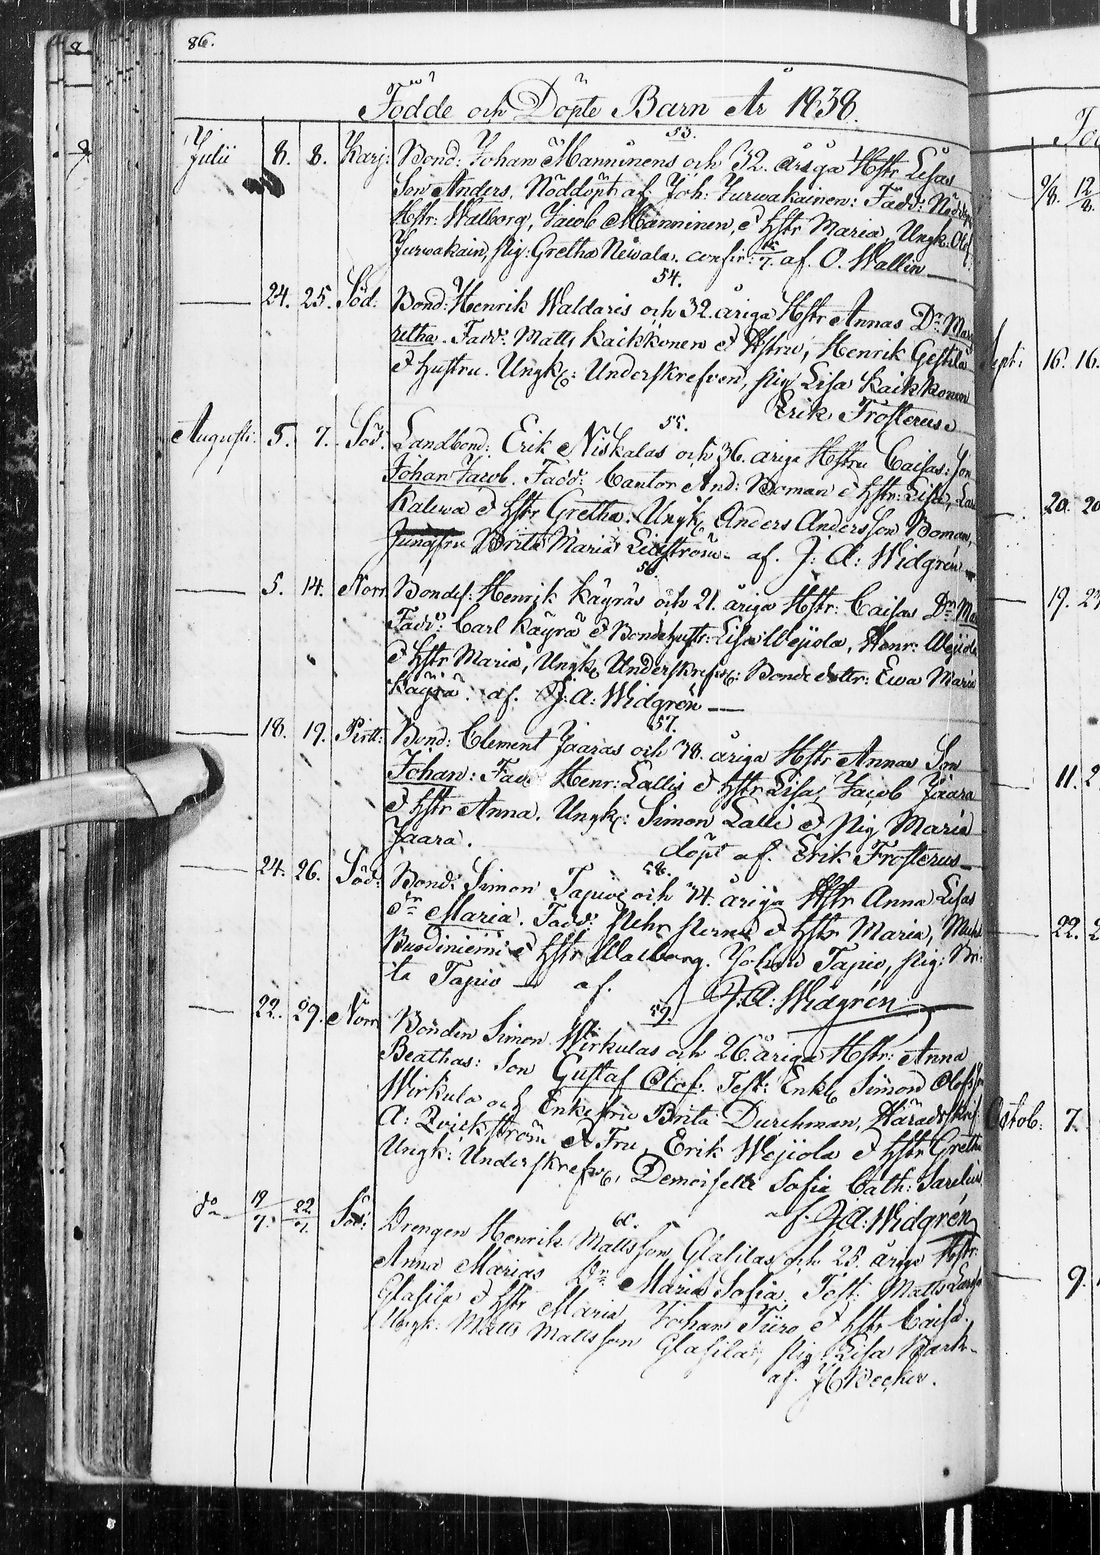 86.
Födde och Döpte Barn År 1838.
53.
Julii 8. 8. Karj: Bond: Johan Manninens och 32. åriga Hstr Lisas
Son Anders. Nöddöpt af Joh: Jurwakainen: Fadd:
Hstr: Walborg, Jacob Manninen, & hstr Maria, Ungk: Olof
Jurwakain, Pig: Gretha Newala. confir: af. O. Wallin
54.
24. 25. Söd. Bond: Henrik Waldaris och 32. åriga Hstr Annas Dr Mar
retha. Fadd: Matts Kaikkonen & Hstru, Henrik Gestilä
& hustru. Ungk: Underskrefven, Pig Lisa Kaikkonen
Erik Frosterus
55.
Augusti: 5. 7. Söd. Landbond: Erik Niskalas och 36. åriga Hstru Caisas: Son
Johan Jacob. Fadd: Cantor And: Boman & hstr: Lisa,
Kalewa & hstr Gretha. Ungk Anders Andersson Boman,
Jungfru Brita Maria Lidström af. J: A: Widgrén
56.
5. 14. Norr. Bondes. Henrik Käyräs och 21. åriga Hstr: Caisas Dr Ma
Fadd: Carl Käyrä & Bondehustr: Lisa Wejjola, Henr: Wejjola
& hstr Maria, Ungk Underskrefv: Bondedottr: Ewa Maria
Käyrä. af. J: A: Widgrén
57.
18. 19. Pirtt: Bond: Clement Jaaras och 38. åriga Hstr Annas Son
Johan: Fadd: Henr: Lallis & hstr Lisa, Jacob Jaara
& hstr Anna. Ungk: Simon Lalli & Pig Maria
Jaara. döpt af. Erik Frosterus
58.
24. 26. Söd: Bond: Simon Tapios och 44. åriga Hstr Anna Lisas
dr Maria. Fadd: & hstr Maria,
& hstr Walborg. Johan Tapio, Pig: Bri-
ta Tapio af. J. A: Widgrén
59.
22. 29. Norr Bonden Simon Wirkulas och 26. åriga Hstr: Anna
Beathas: Son Gustaf Olof. Test: Enkl Simon Olofss
Wirkula och Enkefru Brita Durchman, Häradsskrif
A: Qvickström & Fru, Erik Wejjola & hstr Gretha
Ungk: Underskrefv, Demoiselle Sofia Cath: Sarelius
af. J. A: Widgrén
60.
do 19/7. 22/7. Söd: Drengen Henrik Mattsson Glasilas och 25. åriga Hstr:
Anna Marias Dr Maria Sofia. Test: Matts Larss
Glasila & hstr Maria Johan Türo & hstr Caisa.
Ungk: Matts Mattsson Glasila, Pig Lisa
af.
Sept: 16. 16.
20. 20
19. 23
11. 2
22. 2
Octob: 7.
9.